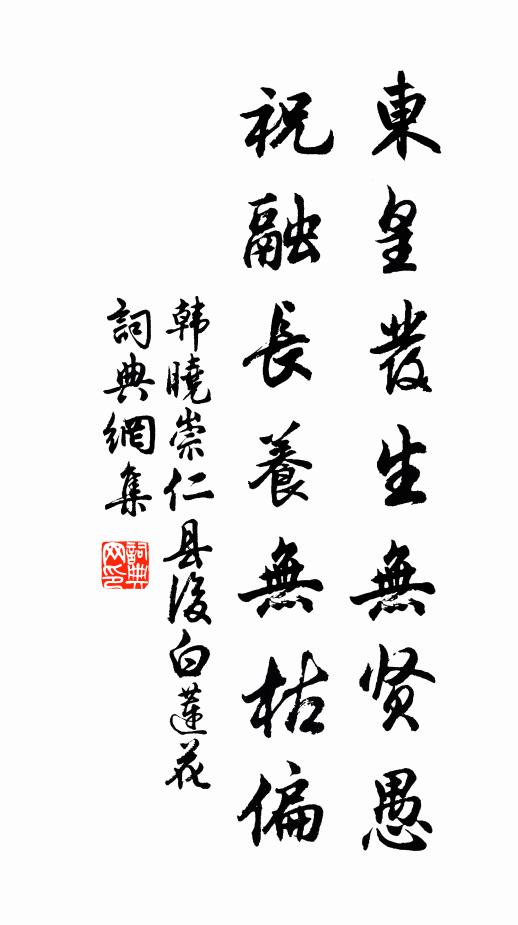 東皇發生無贤愚
祝融長養無枯偏
韩曉崇仁县後白蓮花
詞典網集
詞典网印